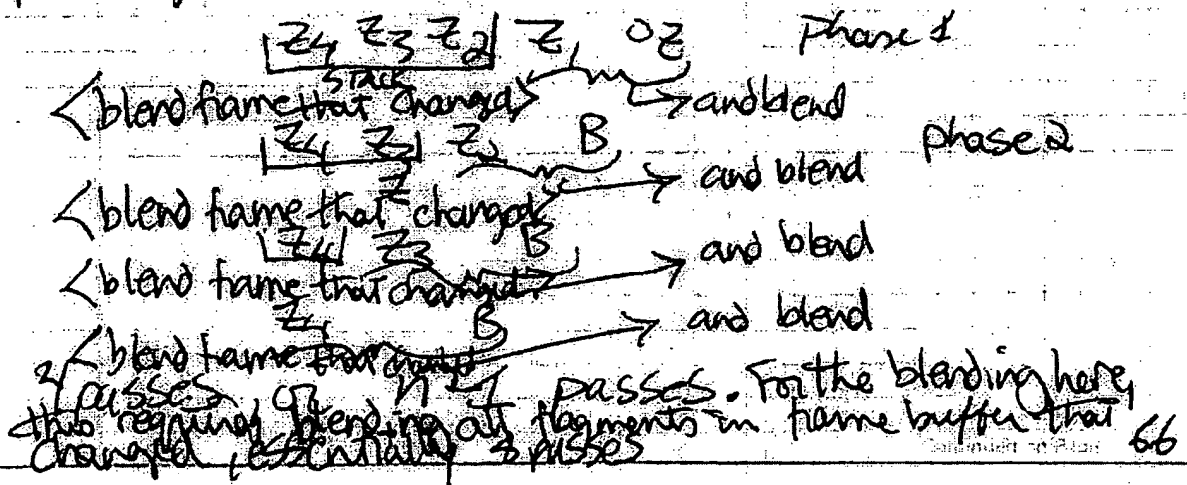 Z4 Z3 Z2 Z1 OZ Phase 1
STACK
<blend frame that changed> and blend
Z4 Z3 Z2 B phase 2
<blend frame that changed> and blend
Z4 Z3 B and blend
<blend frame that changed>
Z4 B and blend
<blend frame that
passes or n-1 passes. For the blending here,
this requires blending all fragments in frame buffer that
changed, essentially passes
66